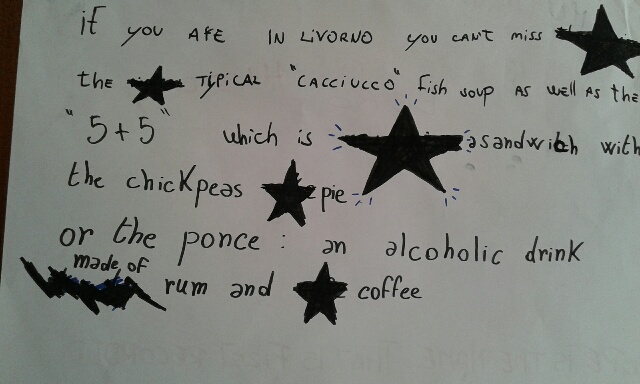 if you are in Livorno you can't miss
the typical "cacciucco" fish soup as well as the
"5+5" which is a sandwich with
the chickpeas pie
or the ponce: an alcoholic drink
made of rum and coffee